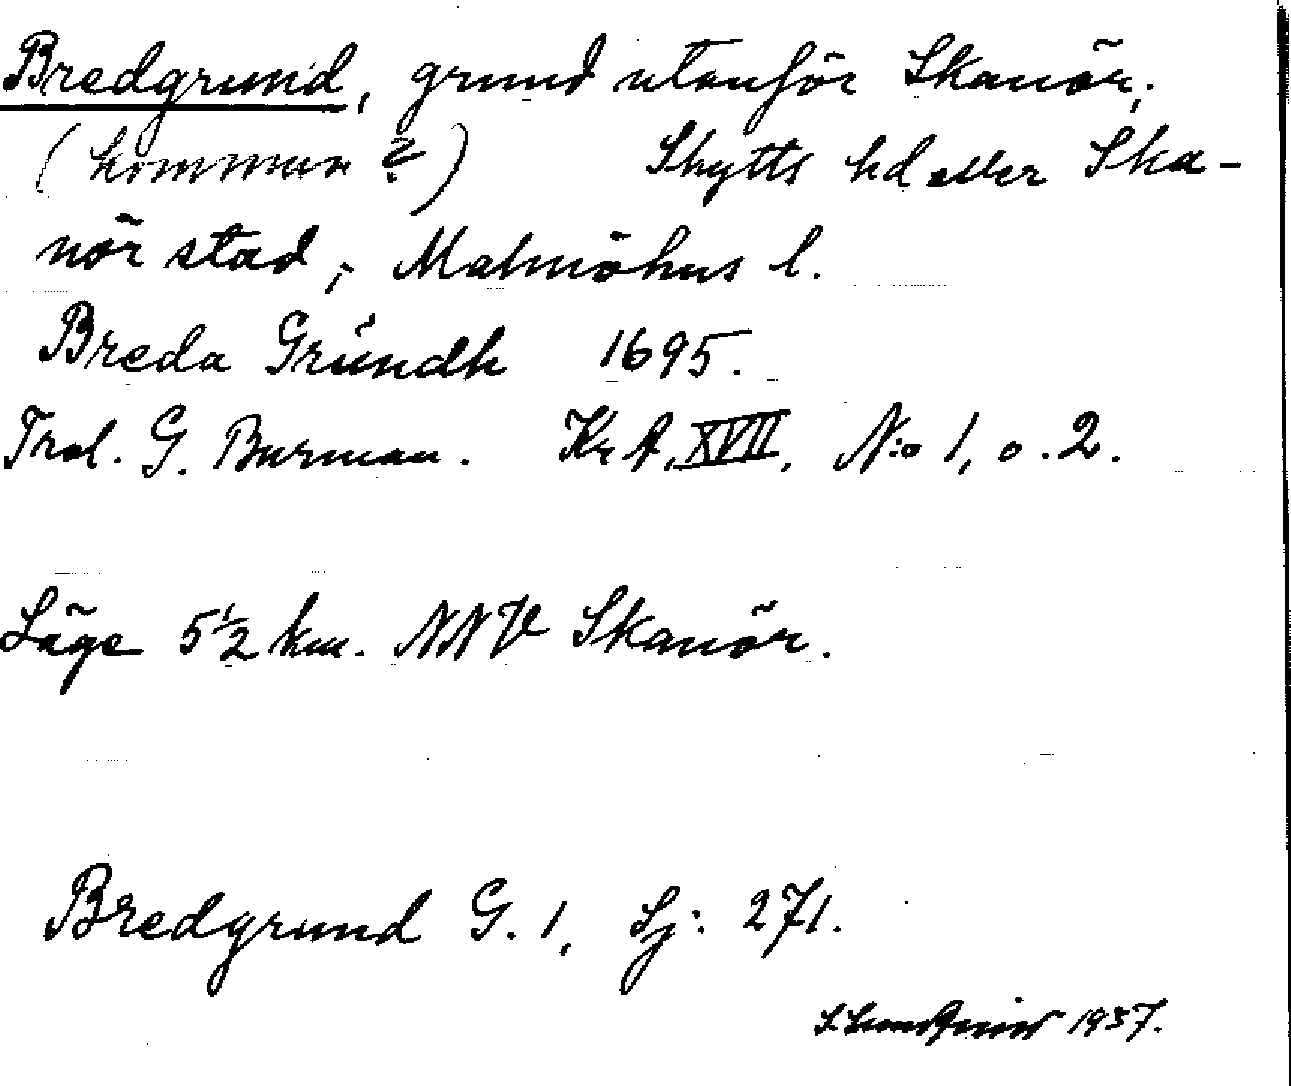 Bredgrund, grund utanför Skanör,
(kommun ?) Skytts hd eller Ska-
nör stad, Malmöhus l.
Breda Gründh 1695.
G. Burman. Kr A, XVII, N:o 1, o. 2.
Läge 5 1/2 km. NNV Skanör.
Bredgrund G. 1, Sj: 271.
1937.